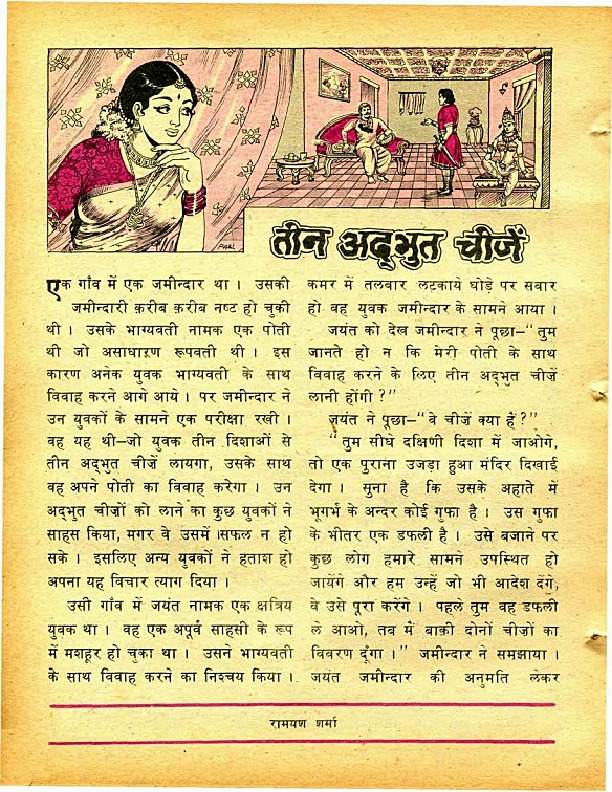 तीन अद्भुत चीजें
एक गाँव में एक जमीन्दार था । उसकी
जमीन्दारी क़रीब क़रीब नष्ट हो चुकी
थी । उसके भाग्यवती नामक एक पोती
थी जो असाधारण रूपवती थी । इस
कारण अनेक युवक भाग्यवती के साथ
विवाह करने आगे आये । पर जमीन्दार ने
उन युवकों के सामने एक परीक्षा रखी ।
वह यह थी–जो युवक तीन दिशाओं से
तीन अद्भुत चीजें लायगा, उसके साथ
वह अपने पोती का विवाह करेगा । उन
अद्भुत चीज़ों को लाने का कुछ युवकों ने
साहस किया, मगर वे उसमें सफल न हो
सके । इसलिए अन्य युवकों ने हताश हो
अपना यह विचार त्याग दिया ।
उसी गाँव में जयंत नामक एक क्षत्रिय
युवक था । वह एक अपूर्व साहसी के रूप
में मशहूर हो चुका था । उसने भाग्यवती
के साथ विवाह करने का निश्चय किया ।
कमर में तलवार लटकाये घोड़े पर सवार
हो वह युवक जमीन्दार के सामने आया ।
जयंत को देख जमीन्दार ने पूछा–“तुम
जानते हो न कि मेरी पोती के साथ
विवाह करने के लिए तीन अद्भुत चीज़ें
लानी होंगी ?”
जयंत ने पूछा–“वे चीजें क्या हैं ?”
“तुम सीधे दक्षिणी दिशा में जाओगे,
तो एक पुराना उजड़ा हुआ मंदिर दिखाई
देगा । सुना है कि उसके अहाते में
भूगर्भ के अन्दर कोई गुफा है । उस गुफा
के भीतर एक डफली है । उसे बजाने पर
कुछ लोग हमारे सामने उपस्थित हो
जायेंगे और हम उन्हें जो भी आदेश देंगे,
वे उसे पूरा करेंगे । पहले तुम वह डफली
ले आओ, तब में बाक़ी दोनों चीजों का
विवरण दूँगा ।” जमीन्दार ने समझाया ।
जयंत जमीन्दार की अनुमति लेकर
रामयश शर्मा